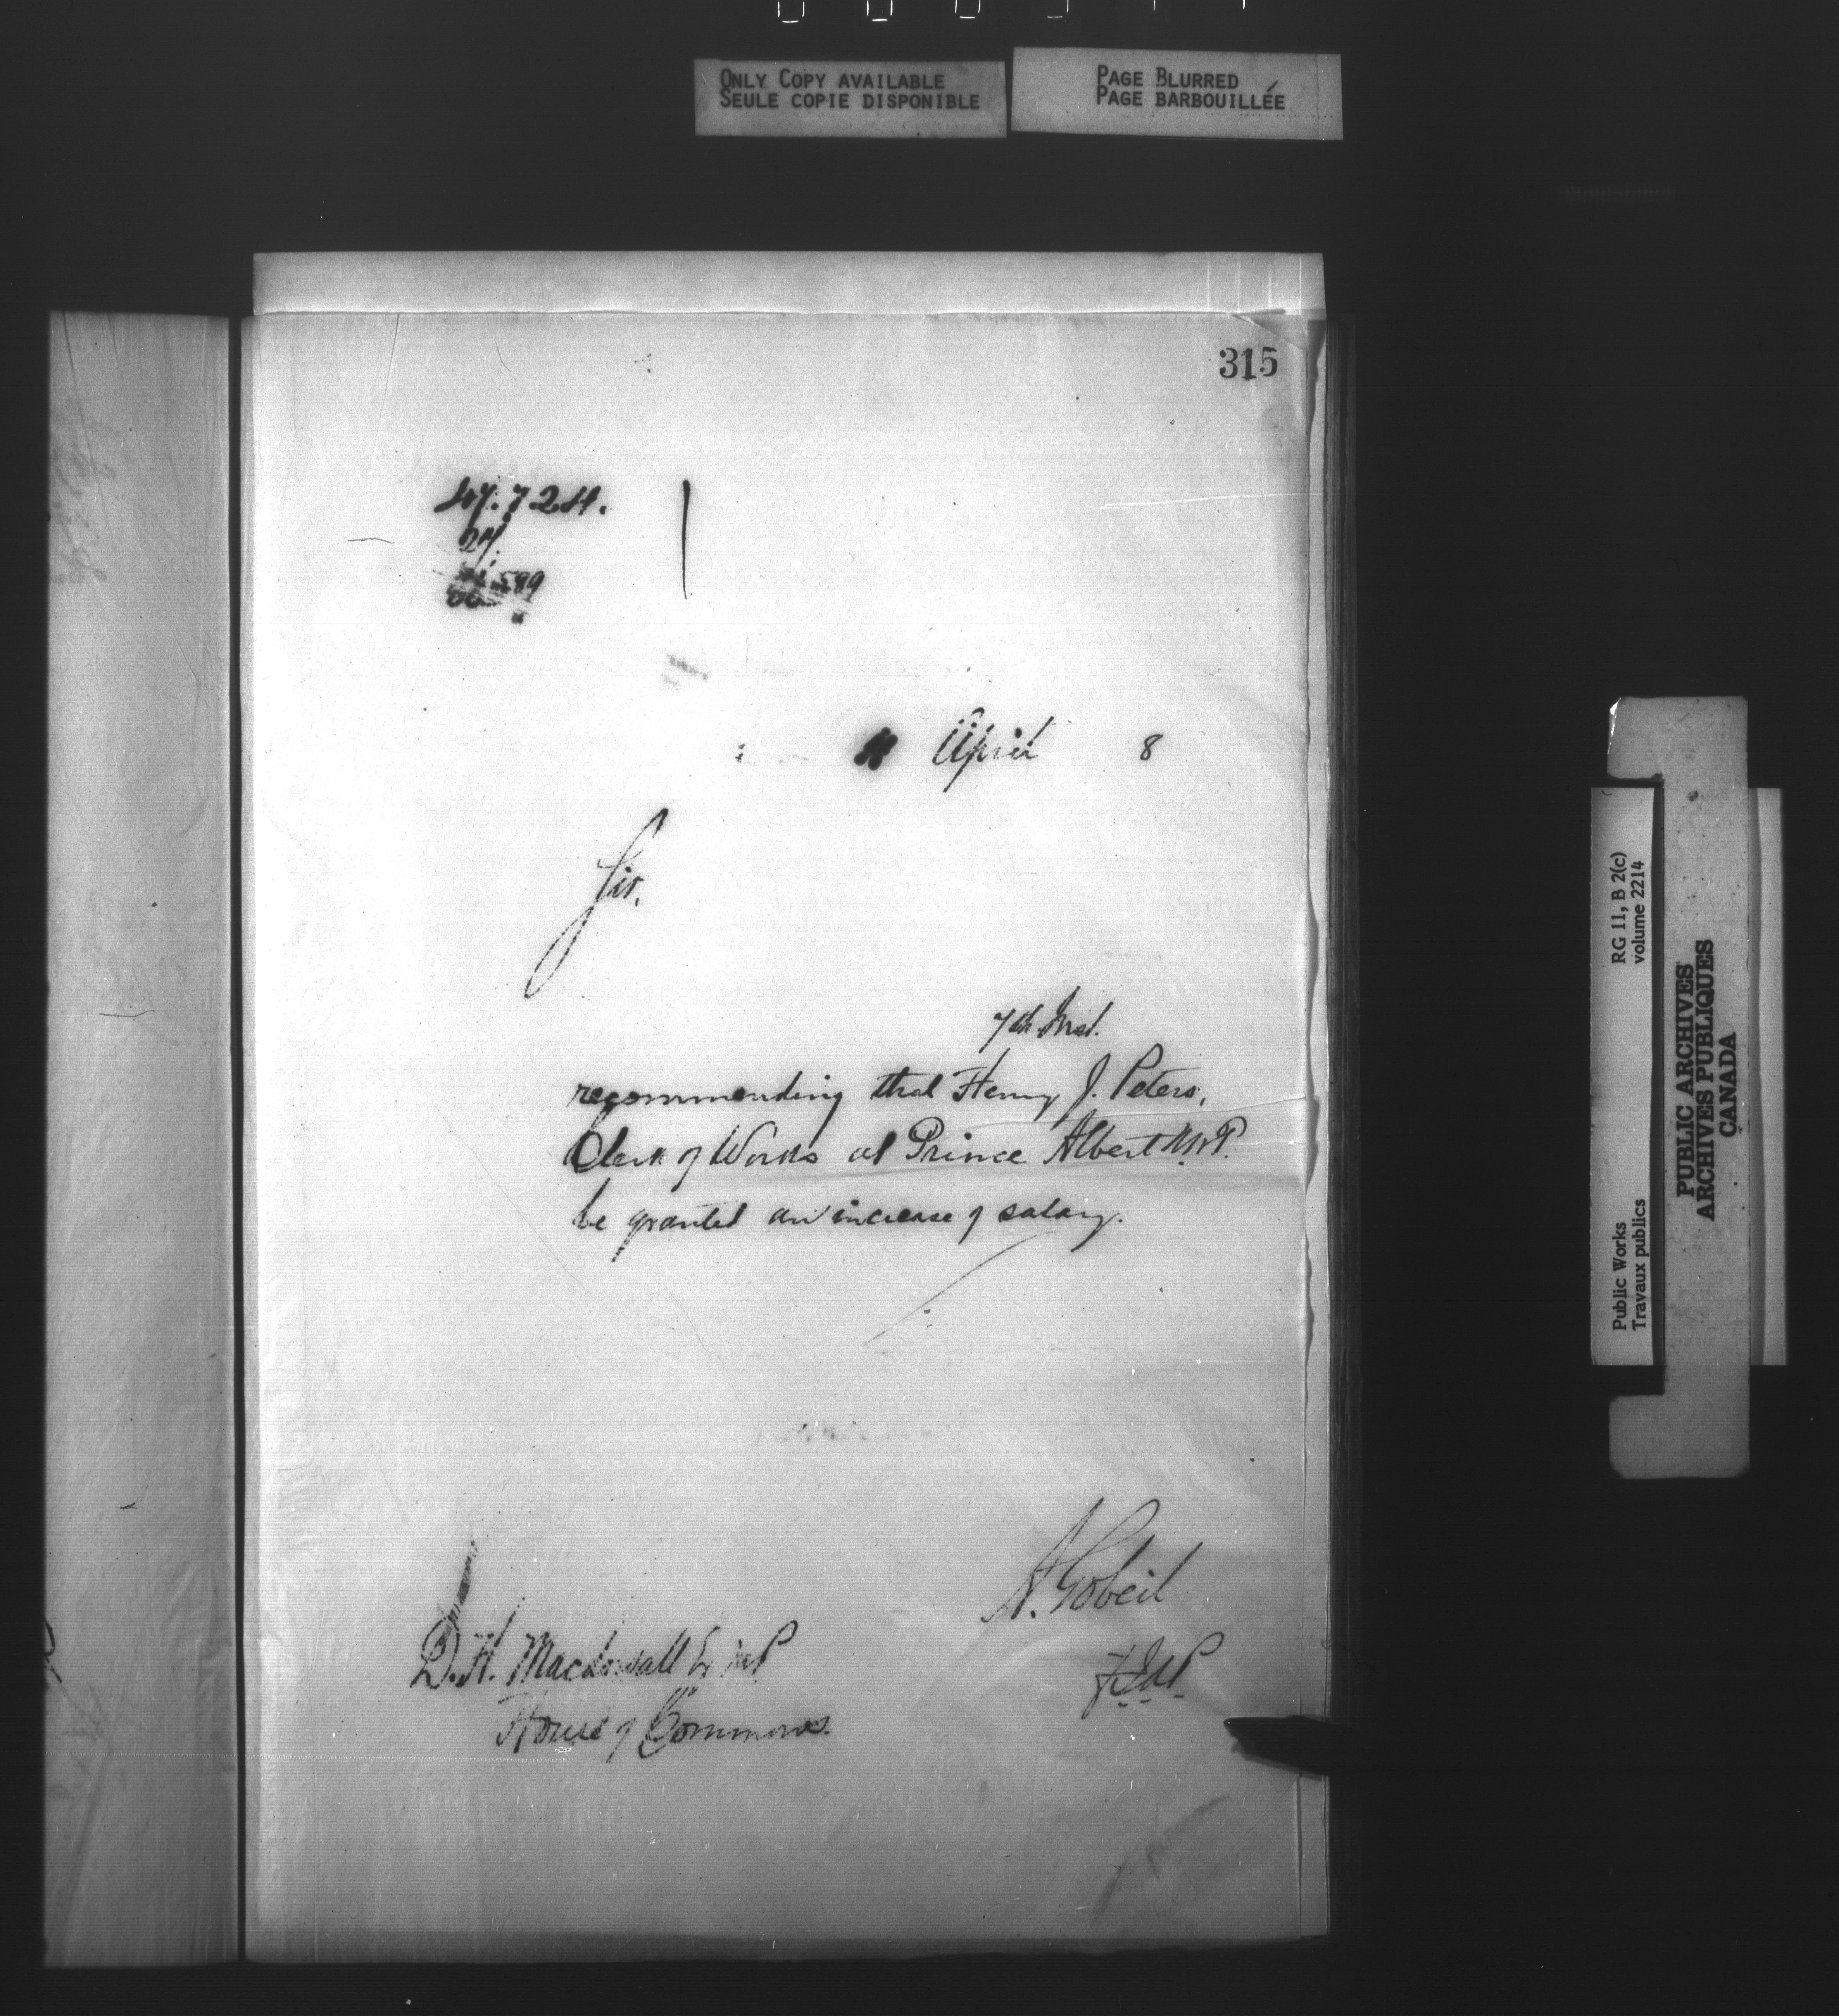 ONLY COPY AVAILABLE
SEULE COPIE DISPONIBLE
PAGE BLURRED
PAGE BARBOUILLÉE
315
47.724.
April 8
Sir,
7th Inst.
recommending that Henry J. Peters,
Clerk of Works at Prince Albert
be granted an increase of salary.
A. Gobeil
D. H. Macdowall Er MP
House of Commons.
Public Works RG 11, B 2(c)
Travaux publics volume 2214
PUBLIC ARCHIVES
ARCHIVES PUBLIQUES
CANADA